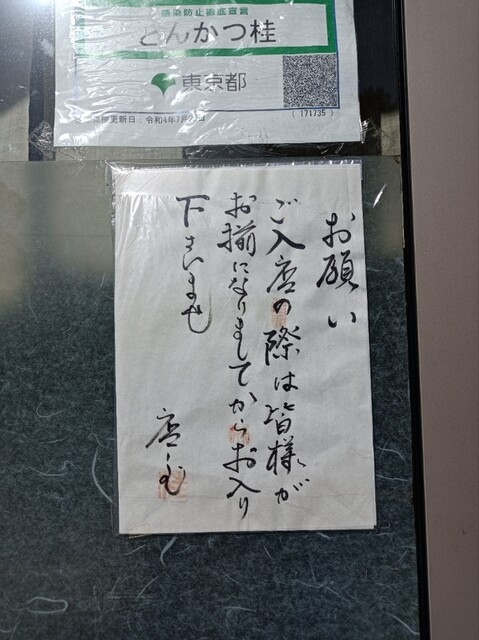 感染防止徹底宣言
とんかつ桂
東京都
更新日：令和4年7月2
(171735)
お願い
ご入店の際は皆様が
お揃になりましてからお入り
下さいませ
店主